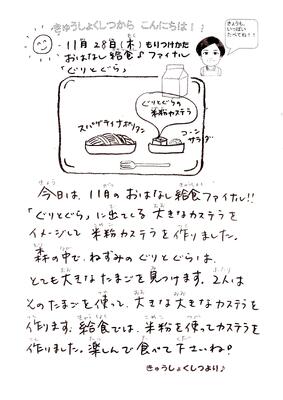 きゅうしょくしつから こんにちは！♪
きょうも、
いっぱい
たべてね！！
11月28日(木)もりつけかた
おはなし給食♪ファイナル
「ぐりとぐら」
ぐりとぐらの
米粉カステラ
スパゲティナポリタン
コーン
サラダ
今日は、11月のおはなし給食ファイナル!!
「ぐりとぐら」に出てくる大きなカステラを
イメージして米粉カステラを作りました。
森の中で、ねずみのぐりとぐらは、
とても大きなたまごを見つけます。2人は
そのたまごを使って、大きな大きなカステラを
作ります。給食では、米粉を使ってカステラを
作りました。楽しんで食べて下さいね。
きゅうしょくしつより♪